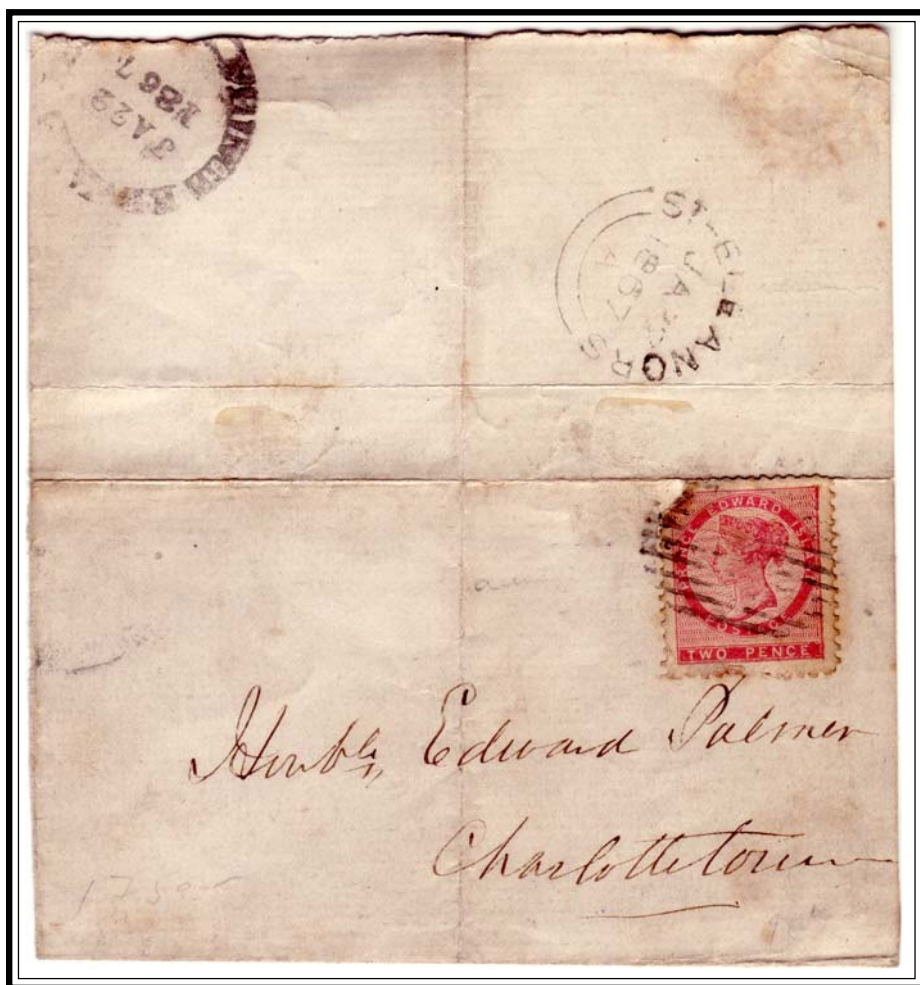 JA 22
1867
ST. ELEANORS
JA
1867
PRINCE EDWARD ISLAND
POSTAGE
TWO PENCE
Honble, Edward Palmer
Charlottetown